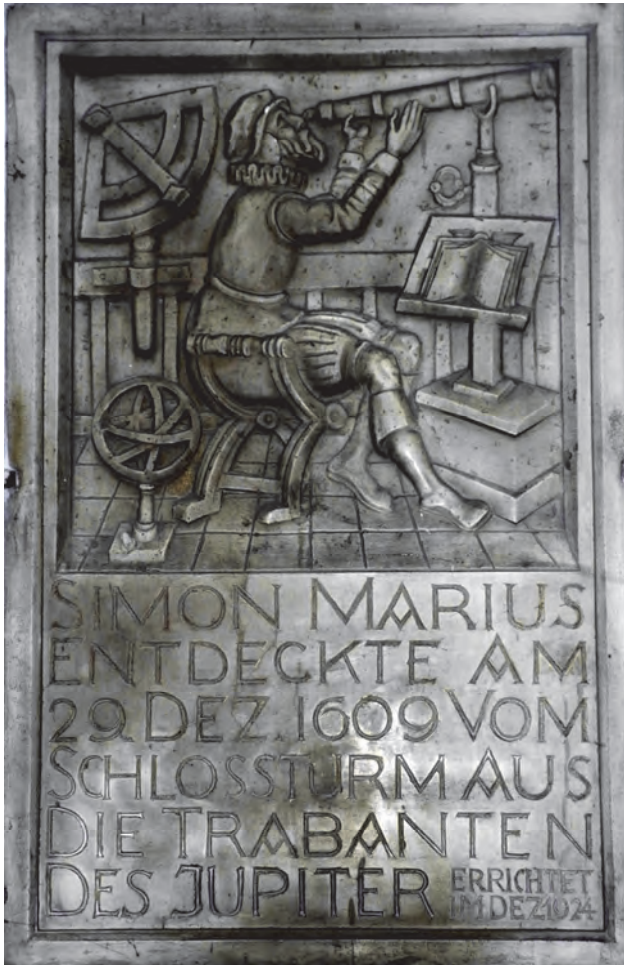 SIMON MARIUS
ENTDECKTE AM
29. DEZ. 1609 VOM
SCHLOSSTURM AUS
DIE TRABANTEN
DES JUPITER
ERRICHTET
IM DEZ 1924